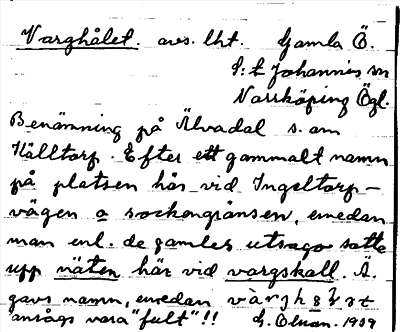 Varghålet. avs. lht. Gamla Ö.
S:t Johannis sn
Norrköping Ögl.
Benämning på Älvadal s. om
Hälltorp. Efter ett gammalt namn
på platsen här vid Ingeltorp-
vägen o sockengränsen, emedan
man enl. de gamles utsago satte
upp näten här vid vargskall. Ä.
gavs namn, emedan
ansågs vara "fult"!! G. Elman. 1939